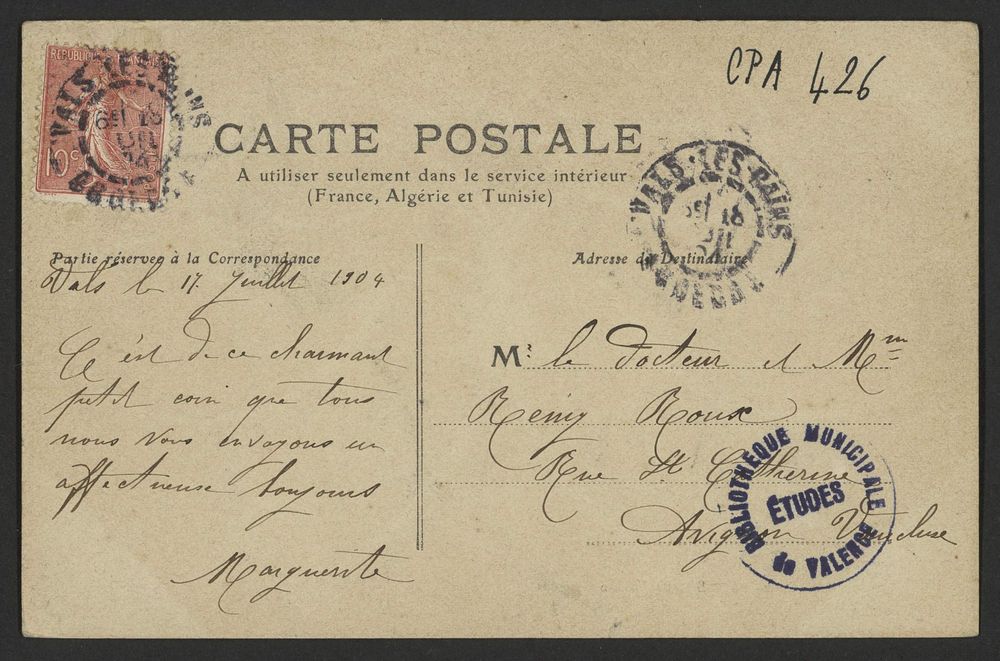 CPA 426
REPUBLIQUE FRANÇAISE
VALS-LES-BAINS
10c
CARTE POSTALE
A utiliser seulement dans le service intérieur
(France, Algérie et Tunisie)
VALS-LES-BAINS
18
ARDECHE
Partie réservée à la Correspondance
Vals le 17 Juillet 1904
C'est de ce charmant
petit coin que tous
nous vous envoyons un
affectueuse toujours
Marguerite
Adresse du Destinataire
M. le docteur et Mme
Remy Roux
Rue St Catherine
Avignon Vaucluse
BIBLIOTHÈQUE MUNICIPALE
ÉTUDES
de VALENCE